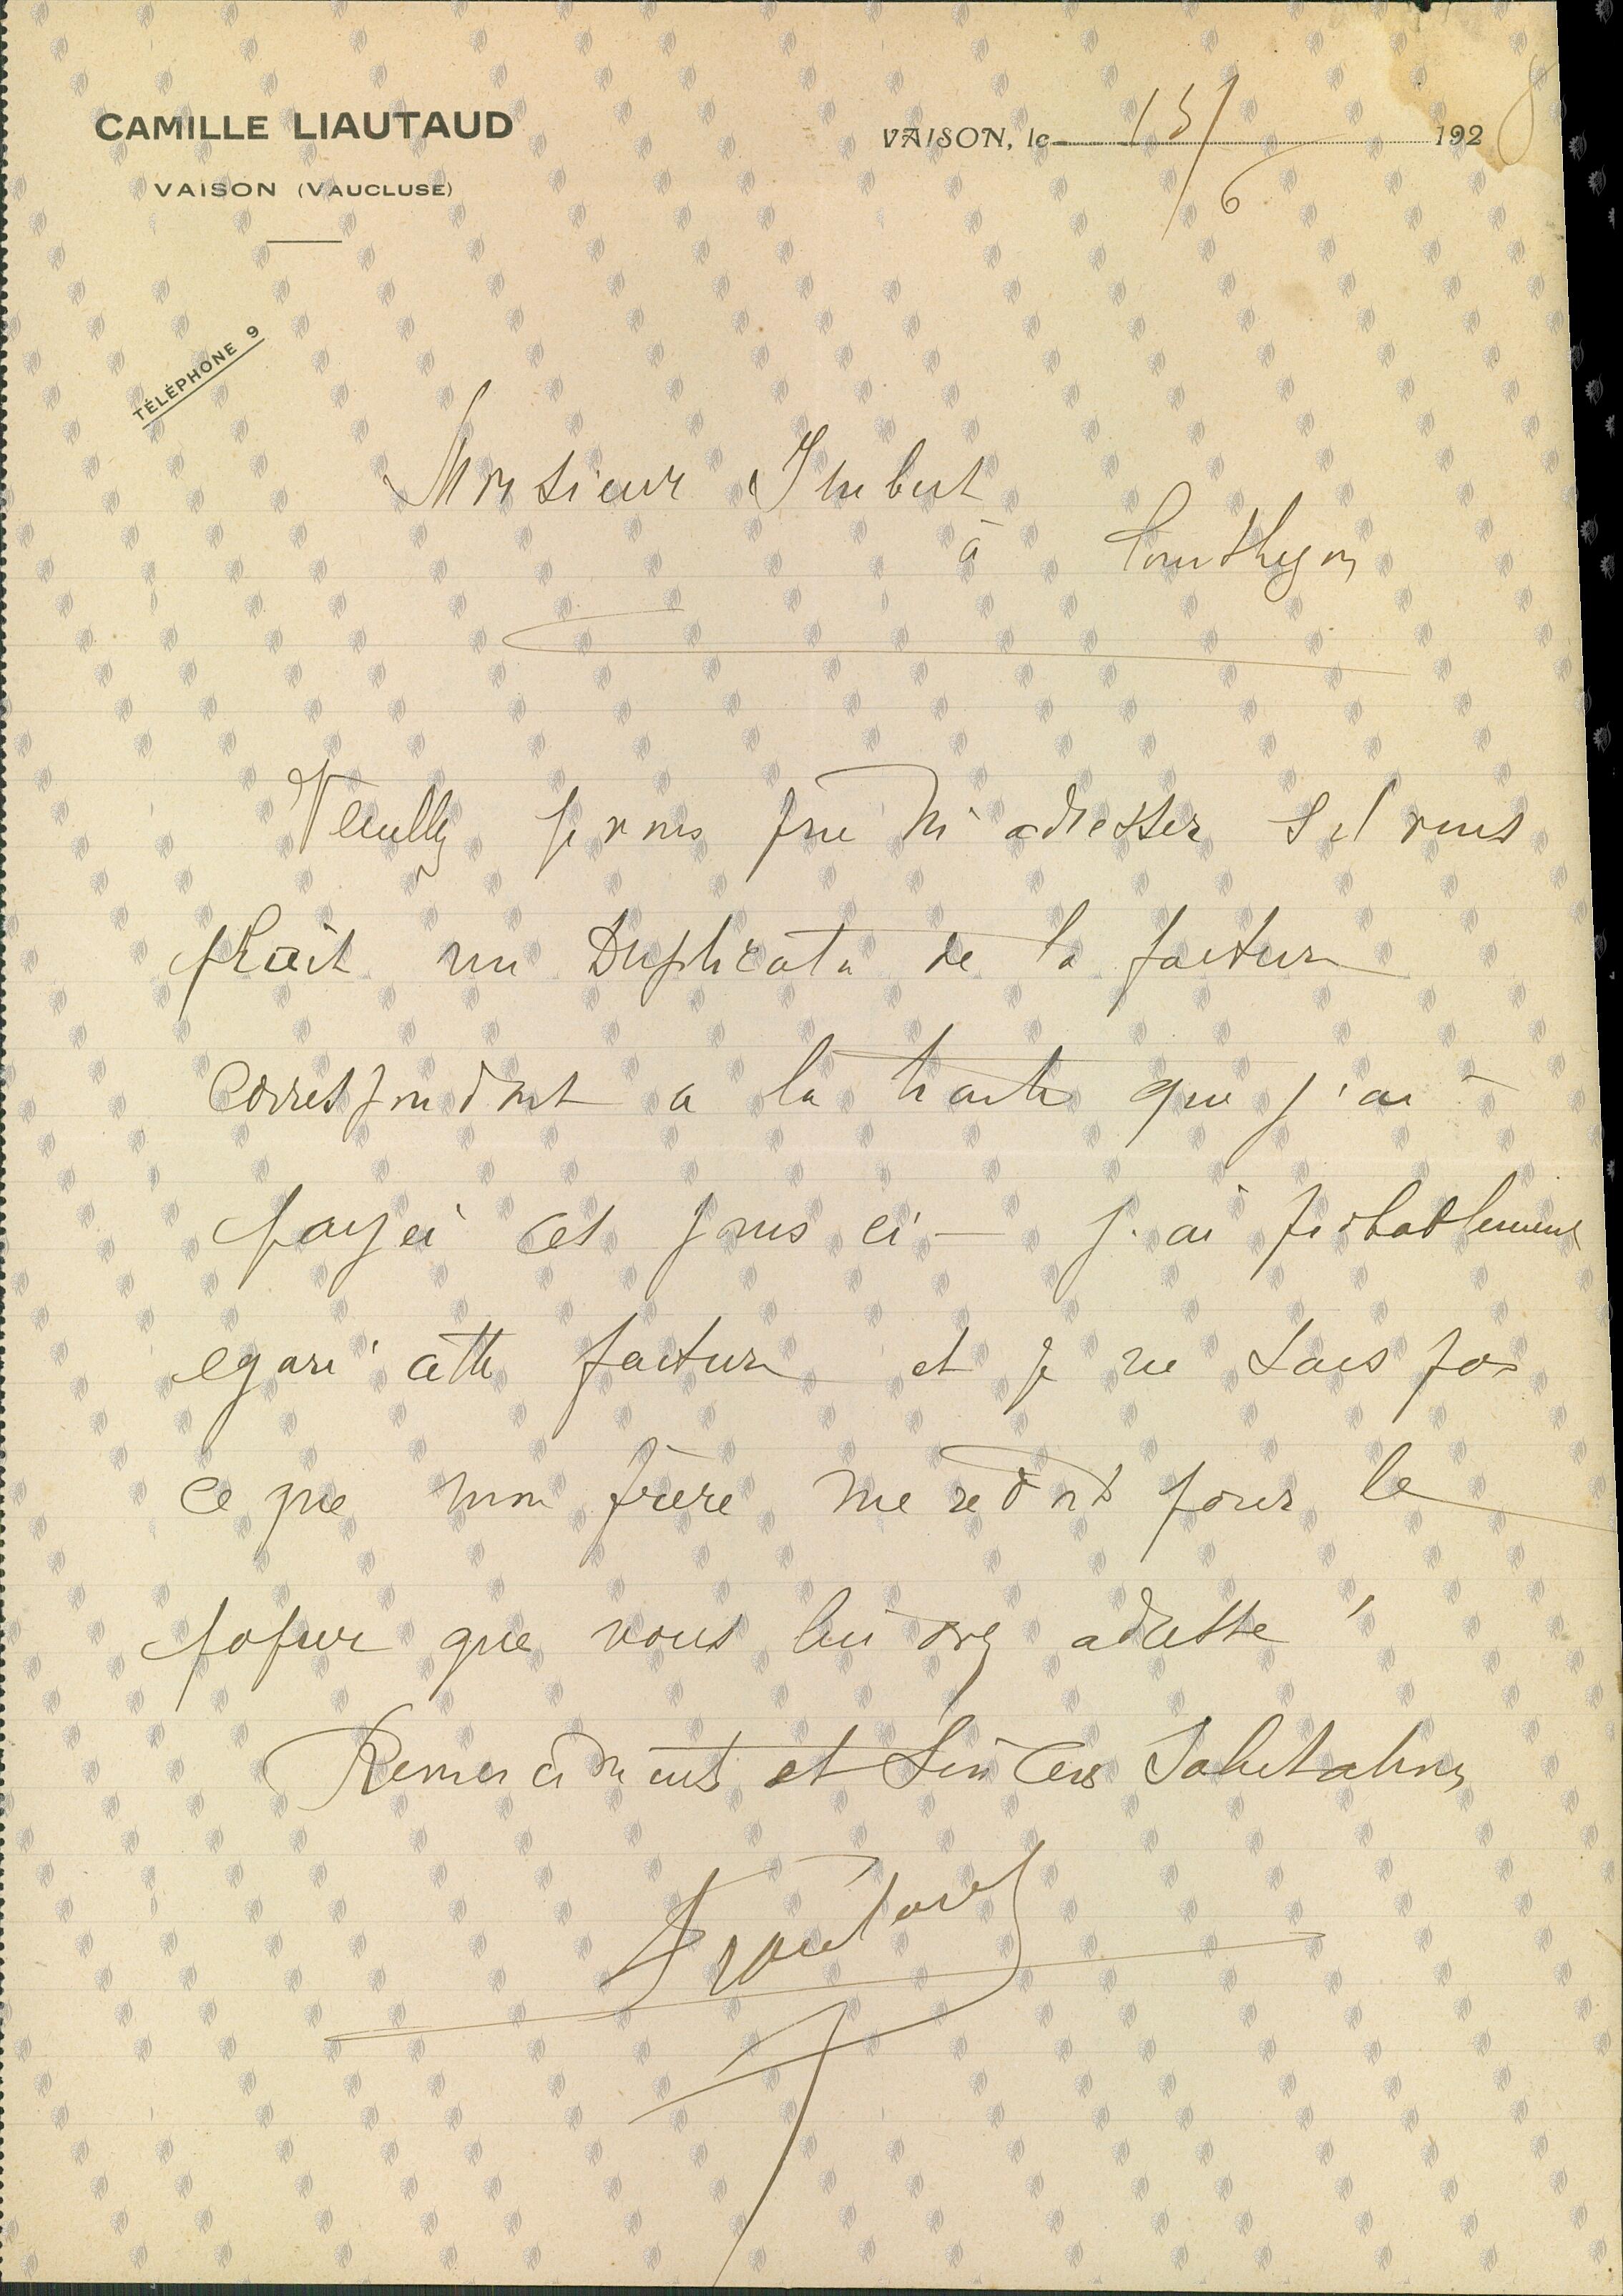 CAMILLE LIAUTAUD
VAISON (VAUCLUSE)
VAISON, le 15/6 1928
TÉLÉPHONE 9
Monsieur Imbert
à Courthezon
Veuillez je vous prie m'adresser s'il vous
plait un Duplicata de la facture
correspondant a la traite que j'ai
payée ces jours ci — j'ai probablement
egaré cette facture et je ne sais pas
ce que mon frère me redoit pour le
que vous lui avez adressé
Remerciements et Sincères Salutations
Liautaud